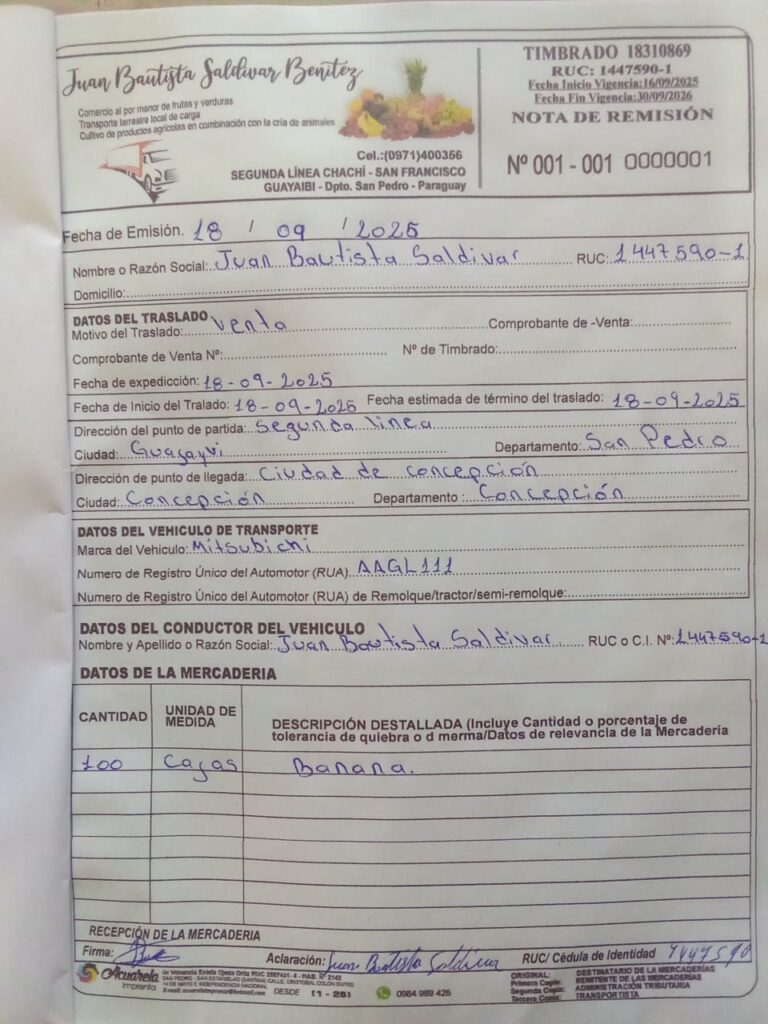 Juan Bautista Saldivar Benitez
Comercio al por menor de frutas y verduras
Transporte terrestre local de carga
Cultivo de productos agrícolas en combinación con la cria de animales
Cel.:(0971)400356
SEGUNDA LÍNEA CHACHÍ - SAN FRANCISCO
GUAYAIBI - Dpto. San Pedro - Paraguay
TIMBRADO 18310869
RUC: 1447590-1
Fecha Inicio Vigencia:16/09/2025
Fecha Fin Vigencia:30/09/2026
NOTA DE REMISIÓN
Nº 001 - 001 0000001
Fecha de Emisión. 18 / 09 / 2025
Nombre o Razón Social: Juan Bautista Saldivar RUC: 1447590-1
Domicilio:
DATOS DEL TRASLADO
Motivo del Traslado: Venta Comprobante de -Venta:
Comprobante de Venta Nº: Nº de Timbrado:
Fecha de expedicción: 18-09-2025
Fecha de Inicio del Tralado: 18-09-2025 Fecha estimada de término del traslado: 18-09-2025
Dirección del punto de partida: Segunda linea
Ciudad: Guayayvi Departamento: San Pedro
Dirección de punto de llegada: Ciudad de concepción
Ciudad: Concepción Departamento : Concepción
DATOS DEL VEHICULO DE TRANSPORTE
Marca del Vehiculo: Mitsubichi
Numero de Registro Único del Automotor (RUA) AAGL111
Numero de Registro Único del Automotor (RUA) de Remolque/tractor/semi-remolque:
DATOS DEL CONDUCTOR DEL VEHICULO
Nombre y Apellido o Razón Social: Juan Bautista Saldivar RUC o C.I. Nº: 1447590-1
DATOS DE LA MERCADERIA
CANTIDAD UNIDAD DE MEDIDA DESCRIPCIÓN DESTALLADA (Incluye Cantidad o porcentaje de
tolerancia de quiebra o d merma/Datos de relevancia de la Mercaderia
100 Cajas Banana.
RECEPCIÓN DE LA MERCADERIA
Firma: Aclaración: Juan Bautista Saldivar RUC/ Cédula de Identidad 1447590
Acuarela
imprenta
de Venancia Estela Ojeda Ortiz RUC 2587431- 4 - HAB. Nº 2143
DESDE (1 - 25) 0984 989 426
ORIGINAL: DESTINATARIO DE LA MERCADERÍAS
Primera Copia: REMITENTE DE LAS MERCADERÍAS
Segunda Copia: ADMINISTRACIÓN TRIBUTARIA
Tercera Copia: TRANSPORTISTA